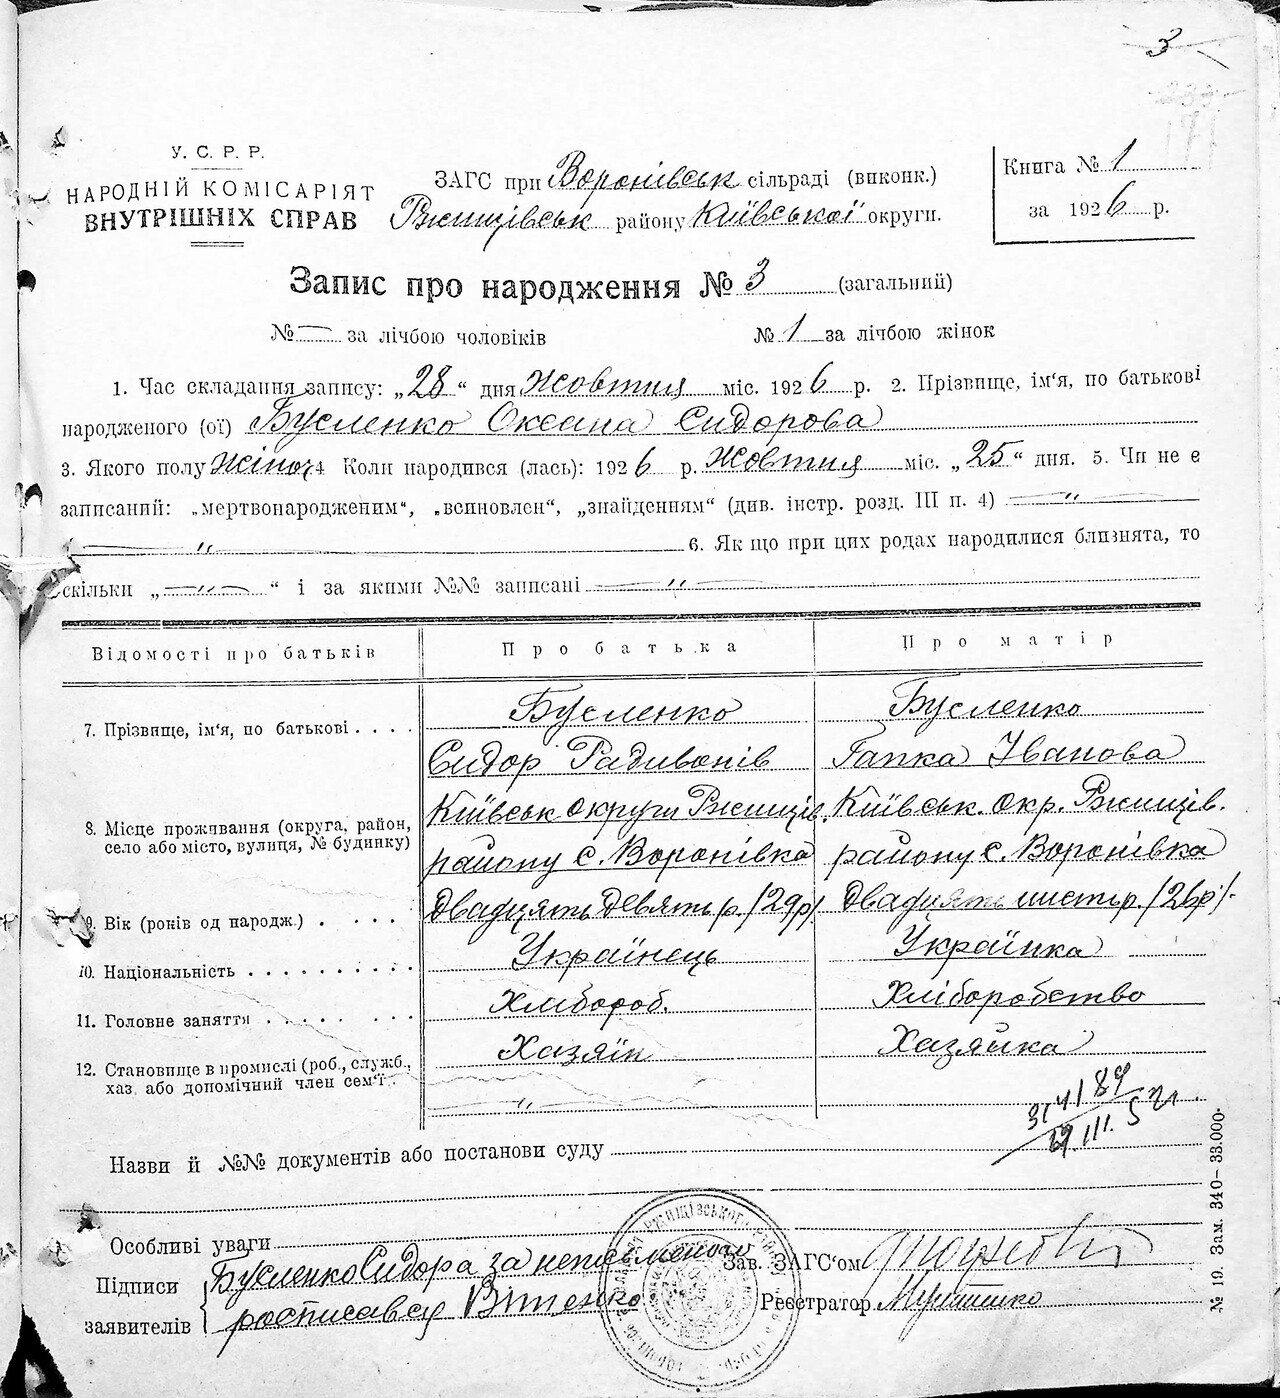 3
У. С. Р. Р.
НАРОДНІЙ КОМІСАРІЯТ
ВНУТРІШНІХ СПРАВ
ЗАГС при Воронівськ сільраді (виконк.)
Ржищівськ району Київської округи.
Книга № 1
за 1926 р.
Запис про народження № 3 (загальний)
№ — за лічбою чоловіків № 1 за лічбою жінок
1. Час складання запису: „28“ дня Жовтня міс. 1926 р. 2. Прізвище, ім'я, по батькові
народженого (ої) Бусленко Оксана Сидорова
3. Якого полу жіноч 4 Коли народився (лась): 1926 р. Жовтня міс. „25“ дня. 5. Чи не є
записаний: „мертвонародженим“, „всиновлен“, „знайденням“ (див. інстр. розд. III п. 4) — „ —
— „ — 6. Як що при цих родах народилися близнята, то
скільки „— „ —“ і за якими №№ записані — „ —
Відомості про батьків Про батька Про матір
7. Прізвище, ім'я, по батькові . . . . Бусленко Бусленко
Сидор Радивонів Гапка Іванова
8. Місце проживання (округа, район, село або місто, вулиця, № будинку) Київськ округи Ржищів. Київськ. окр. Ржищів.
району с. Воронівка району с. Воронівка
9. Вік (років од народж.) . . . . Двадцять девять р. /29р/. Двадцять шість р. /26р/.
10. Національність . . . . . . . . . . Українець Українка
11. Головне заняття . . . . . . . . Хлібороб. Хліборобство
12. Становище в промислі (роб., служб., хаз. або допомічний член сем'ї . Хазяїн Хазяйка
„
Назви й №№ документів або постанови суду
Особливі уваги
Підписи заявителів Бусленко Сидора за неписьменого
росписавсу Вітенко
Зав. ЗАГС'ом
Реєстратор
№ 19. Зам. 340– 33.000.